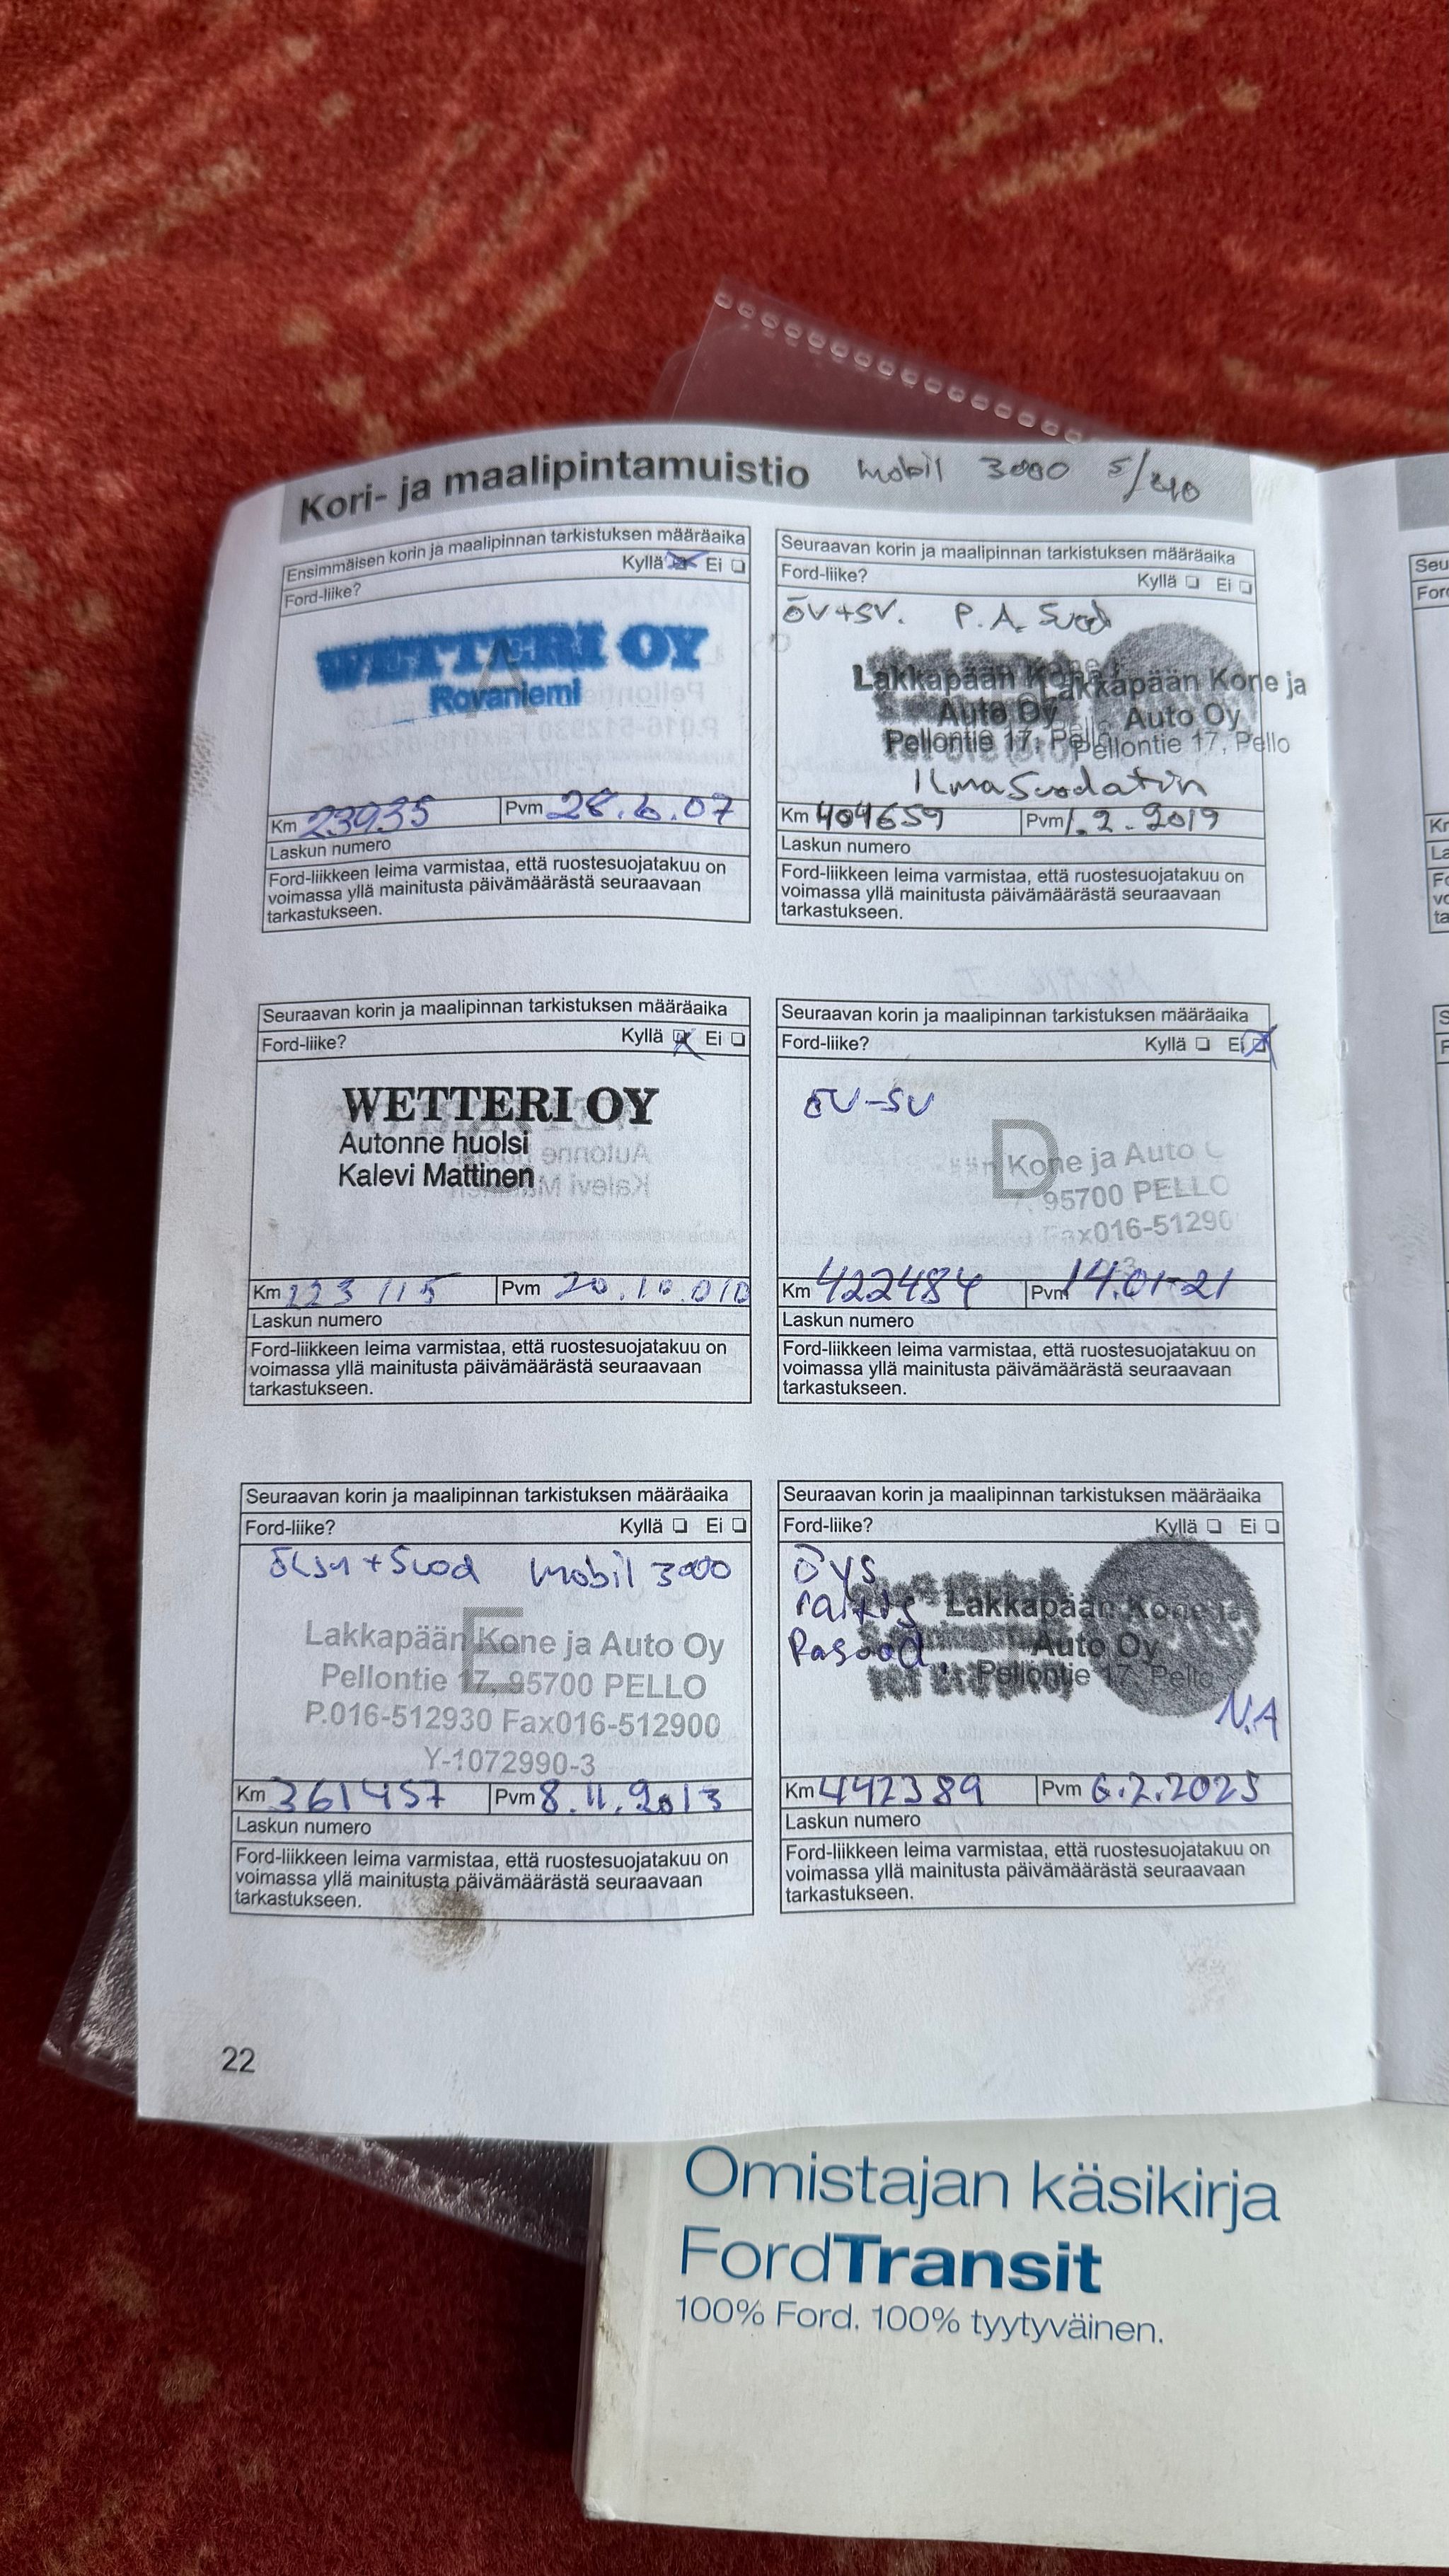 Kori- ja maalipintamuistio mobil 3000 5/40
Ensimmäisen korin ja maalipinnan tarkistuksen määräaika
Ford-liike? Kyllä Ei
A
WETTERI OY
Rovaniemi
Km 23935 Pvm 28.6.07
Laskun numero
Ford-liikkeen leima varmistaa, että ruostesuojatakuu on
voimassa yllä mainitusta päivämäärästä seuraavaan
tarkastukseen.
Seuraavan korin ja maalipinnan tarkistuksen määräaika
Ford-liike? Kyllä Ei
ÖV+SV. P.A. Suod
Lakkapään Kone ja
Auto Oy
Pellontie 17, Pello
Lakkapään Kone ja
Auto Oy
Pellontie 17, Pello
Ilmasuodatin
Km 404659 Pvm 1.2.2019
Laskun numero
Ford-liikkeen leima varmistaa, että ruostesuojatakuu on
voimassa yllä mainitusta päivämäärästä seuraavaan
tarkastukseen.
Seuraavan korin ja maalipinnan tarkistuksen määräaika
Ford-liike? Kyllä Ei
WETTERI OY
Autonne huolsi
Kalevi Mattinen
Km 223 115 Pvm 20.10.010
Laskun numero
Ford-liikkeen leima varmistaa, että ruostesuojatakuu on
voimassa yllä mainitusta päivämäärästä seuraavaan
tarkastukseen.
Seuraavan korin ja maalipinnan tarkistuksen määräaika
Ford-liike? Kyllä Ei
ÖV-SV
D
Kone ja Auto O
7, 95700 PELLO
Fax016-51290
Km 422484 Pvm 14.01-21
Laskun numero
Ford-liikkeen leima varmistaa, että ruostesuojatakuu on
voimassa yllä mainitusta päivämäärästä seuraavaan
tarkastukseen.
Seuraavan korin ja maalipinnan tarkistuksen määräaika
Ford-liike? Kyllä Ei
Öljy + Suod mobil 3000
E
Lakkapään Kone ja Auto Oy
Pellontie 17, 95700 PELLO
P.016-512930 Fax016-512900
Y-1072990-3
Km 361457 Pvm 8.11.2013
Laskun numero
Ford-liikkeen leima varmistaa, että ruostesuojatakuu on
voimassa yllä mainitusta päivämäärästä seuraavaan
tarkastukseen.
Seuraavan korin ja maalipinnan tarkistuksen määräaika
Ford-liike? Kyllä Ei
ÖVS
Lakkapään Kone ja
Auto Oy
Pellontie 17, Pello
N.A
Km 442389 Pvm 6.2.2025
Laskun numero
Ford-liikkeen leima varmistaa, että ruostesuojatakuu on
voimassa yllä mainitusta päivämäärästä seuraavaan
tarkastukseen.
22
Omistajan käsikirja
FordTransit
100% Ford. 100% tyytyväinen.